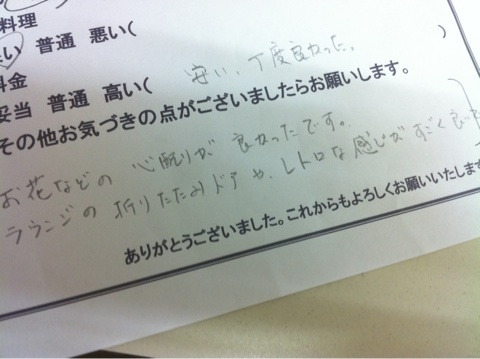 料理
良い 普通 悪い( )
料金
妥当 普通 高い( 安い、丁度良かった。
その他お気づきの点がございましたらお願いします。
お花などの心配りが良かったです。
ラウンジの折りたたみドアや、レトロな感じがすごく良いた
ありがとうございました。これからもよろしくお願いいたします